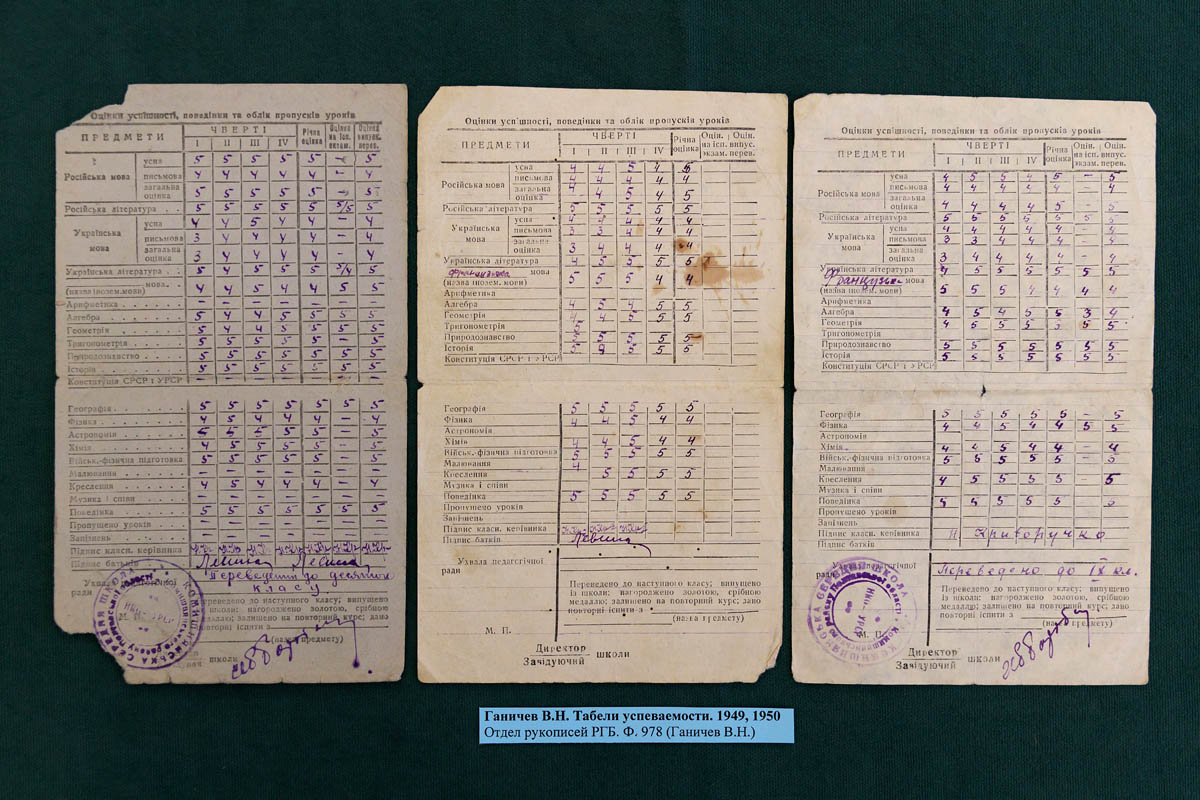 Оцінки успішності, поведінки та облік пропусків уроків
ПРЕДМЕТИ
ЧВЕРТІ
I II III IV
Річна оцінка
Оцінка на ісп. екзам.
Оцінка випуск. перев.
Російська мова
усна 5 5 5 5 5 5
письмова 4 4 4 4 4 – 4
загальна оцінка 5 5 5 5 5 5
Російська література . . 5 5 5 5 5 5/5 5
Українська мова
усна 4 4 5 4 4 – 4
письмова 3 4 4 4 4 – 4
загальна оцінка 3 4 4 4 4 – 4
Українська література . . 5 4 5 5 5 5/4 5
мова . .
(назва інозем. мови) 4 4 5 4 4 5 5
Арифметика . . . . – – – – – – –
Алгебра . . . . 5 4 4 5 5 5 5
Геометрія . . . . 5 4 4 5 5 5 5
Тригонометрія . . . . 5 5 5 5 5 – 5
Природознавство . . . . 5 5 5 5 5 5 5
Історія . . . . 5 5 5 5 5 5 5
Конституція СРСР і УРСР – – – – – – –
Географія . . . . 5 5 5 5 5 5 5
Фізика . . . . 4 5 4 5 4 – 4
Астрономія . . . . 5 5 5 5 5 – 5
Хімія . . . . 4 5 5 5 5 – 5
Військ.-фізична підготовка 5 5 5 5 5 5 5
Малювання . . . . – – – – – – –
Креслення . . . . 4 5 4 4 4 – 4
Музика і співи . . . . – – – – – – –
Поведінка . . . . 5 5 5 5 5 5 5
Пропущено уроків . . . – – – – – – –
Запізнень . . . . – – – – – – –
Підпис класн. керівника
Підпис батьків Левина Левина
Переведений до десятого
класу
педагогічної
ради
Переведено до наступного класу; випущено
із школи; нагороджено золотою, срібною
медаллю; залишено на повторний курс; дано
повторні іспити з
(назва предмету)
школи
КОМИШНЯНСЬКА СЕРЕДНЯ ШКОЛА
Оцінки успішності, поведінки та облік пропусків уроків
ПРЕДМЕТИ
ЧВЕРТІ
I II III IV
Річна оцінка
Оцін. на ісп. екзам.
Оцін. випус. перев.
Російська мова
усна 4 4 5 4 5
письмова 4 4 4 4 4
загальна оцінка 4 4 5 4 5
Російська література 5 5 5 5 5
Українська мова
усна 4 4 4
письмова 3 3 4 4 4
загальна оцінка 3 4 4 4 4
Українська література 4 5 5 5 5
Французька мова
(назва інозем. мови) 5 5 5 4 4
Арифметика
Алгебра 4 5 4 5 5
Геометрія 4 4 5 5 5
Тригонометрія 5
Природознавство 5 5 5 5 5
Історія 5 5 5 5
Конституція СРСР і УРСР
Географія 5 5 5 5 5
Фізика 4 4 5 4 4
Астрономія
Хімія 4 4 5 4 4
Військ.-фізична підготовка 5 5 5 5 5
Малювання 4
Креслення 5 5 5 5 5
Музика і співи
Поведінка 5 5 5 5 5
Пропущено уроків
Запізнень
Підпис класн. керівника
Підпис батьків Левина
Ухвала педагогічної
ради
Переведено до наступного класу; випущено
із школи; нагороджено золотою, срібною
медаллю; залишено на повторний курс; дано
повторні іспити з
(назва предмету)
М. П.
Директор
Завідуючий школи
Оцінки успішності, поведінки та облік пропусків уроків
ПРЕДМЕТИ
ЧВЕРТІ
I II III IV
Річна оцінка
Оцін. на ісп. екзам.
Оцін. випус. перев.
Російська мова
усна 4 5 5 4 5 – 5
письмова 4 4 4 4 4 – 4
загальна оцінка 4 4 4 4 5 – 5
Російська література 5 5 5 5 5 5 5
Українська мова
усна 4 4 4 4 4 – 4
письмова 3 3 4 4 4 – 4
загальна оцінка 3 4 4 4 4 – 4
Українська література 4 5 5 5 5 5 5
Французька мова
(назва інозем. мови) 5 5 5 4 4 4 4
Арифметика
Алгебра 4 5 4 5 5 3 4
Геометрія 4 5 5 5 5 5
Тригонометрія
Природознавство 5 5 5 5 5 5 5
Історія 5 5 5 5 5 5 5
Конституція СРСР і УРСР
Географія 5 5 5 5 5 – 5
Фізика 4 4 5 4 4 5 5
Астрономія
Хімія 4 4 5 4 4 – 4
Військ.-фізична підготовка 5 5 5 5 5 – 5
Малювання
Креслення 4 5 5 5 5 – 5
Музика і співи
Поведінка 5 5 5 5 5 5
Пропущено уроків
Запізнень
Підпис класн. керівника Н. Криворучко
Підпис батьків
педагогічної
ради
Переведено до IX кл.
Переведено до наступного класу; випущено
із школи; нагороджено золотою, срібною
медаллю; залишено на повторний курс; дано
повторні іспити з
(назва предмету)
М. П.
Директор
Завідуючий школи
КОМИШНЯНСЬКА СЕРЕДНЯ ШКОЛА
Ганичев В.Н. Табели успеваемости. 1949, 1950
Отдел рукописей РГБ. Ф. 978 (Ганичев В.Н.)